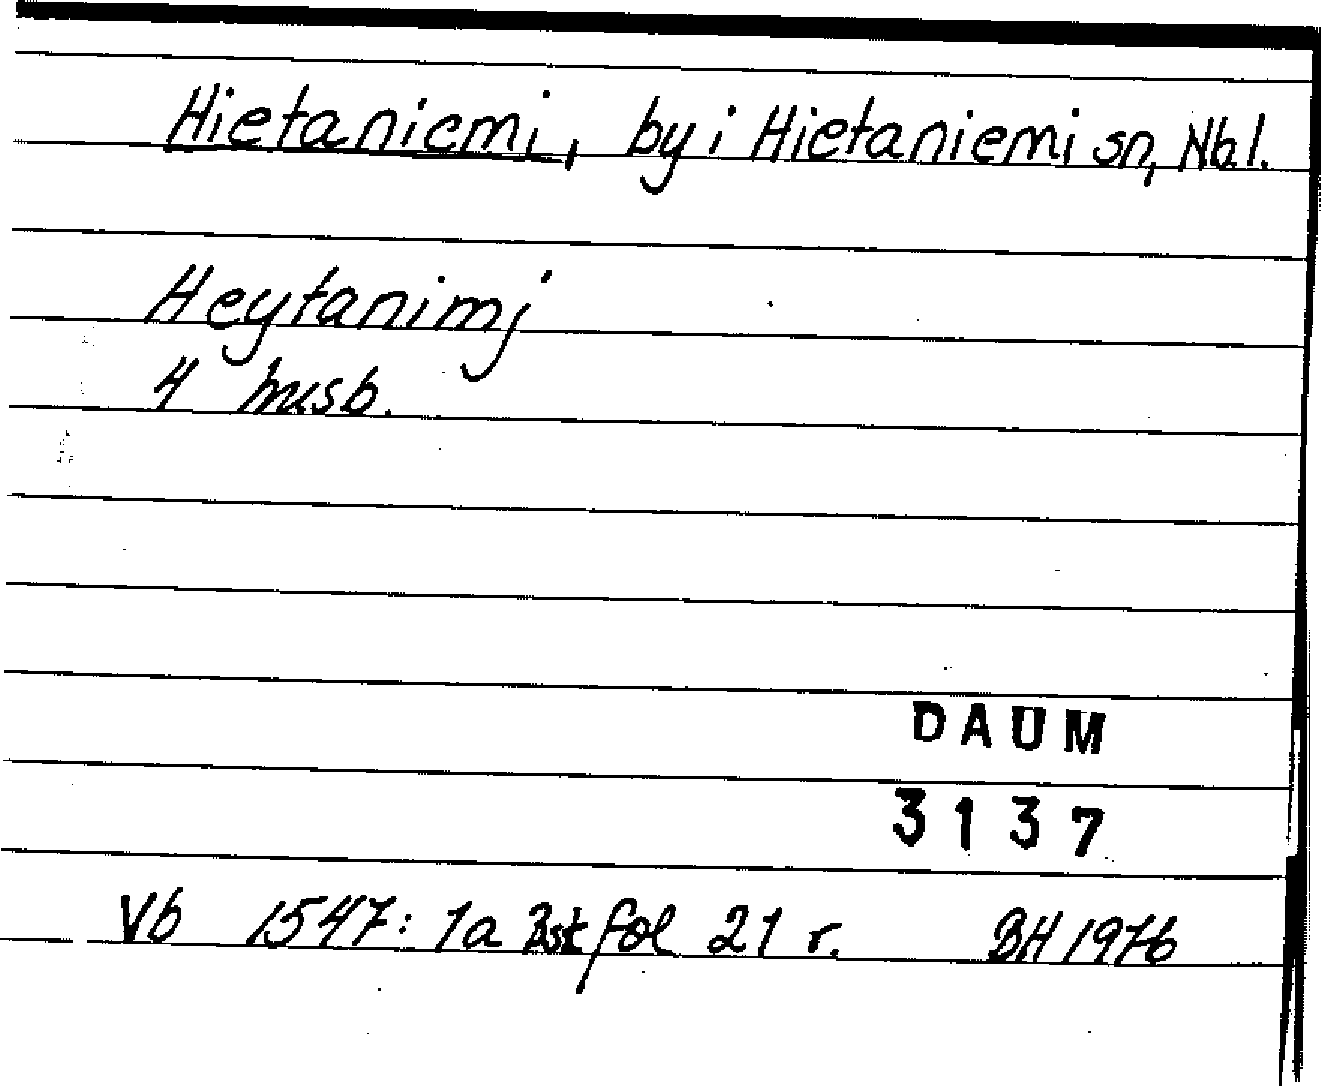 Hietaniemi, by i Hietaniemi sn, Nb.l.
Heytanimj
4 husb.
DAUM
3137
Vb 1547: 1a Bst fol 21 r. BH 1976